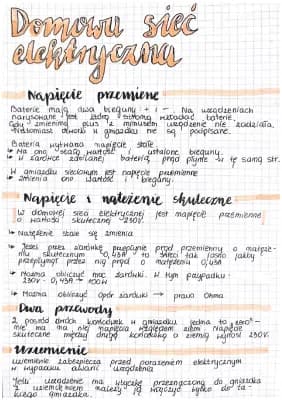 Domowa sieć
elektryczna
Napięcie przemienne
Baterie mają dwa bieguny + i -. Na urządzeniach
narysowane jest którą stroną wkładać baterie.
Gdy zmienimy plus z minusem urządzenie nie zadziała.
Natomiast otworki w gniazdku nie są podpisane.
Bateria wytwarza napięcie stałe
→ Ma ono stałą wartość i ustalone bieguny.
→ W żarówce zasilanej baterią, prąd płynie w tę samą str.
W gniazdku sieciowym jest napięcie przemienne
→ zmienia ono wartość i bieguny.
Napięcie i natężenie skuteczne
W domowej sieci elektrycznej jest napięcie przemienne
o wartości skutecznej 230V.
→ Natężenie stale się zmienia
→ Jeżeli przez żarówkę przepłynie prąd przemienny o natęże-
niu skutecznym 0,43A to świeci tak jasno jakby
przepływał przez nią prąd o natężeniu 0,43A
→ Można obliczyć moc żarówki. W tym przypadku
230V · 0,43A = 100W
→ Można obliczyć opór żarówki → prawo Ohma
Dwa przewody
Z pośród dwóch końcówek w gniazdku jedna to „zero”
nie ma na niej napięcia względem ziemi. Napięcie
skuteczne między drugą końcówką a ziemią wynosi 230V.
Uziemienie
Uziemienie zabezpiecza przed porażeniem elektrycznym
w wypadku awarii urządzenia
Jeśli urządzenie ma wtyczkę przeznaczoną do gniazdka
z uziemieniem należy ją włączyć tylko do ta-
kiego gniazdka.